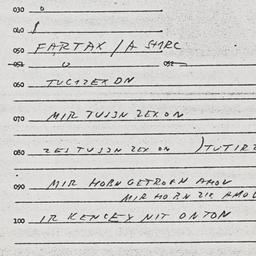 030
040
050 FARTAX / A SHRC
051 052
060 TUCHZEKDN
070 MIR TUSJN ZEXON
080 ZEJ TUSJN ZEX ON ) TUTIRZ
090 MIR HORN GETROFN AMOL
MIR HORN ZIE AMOL
100 IR KENCEX NIT ONTON